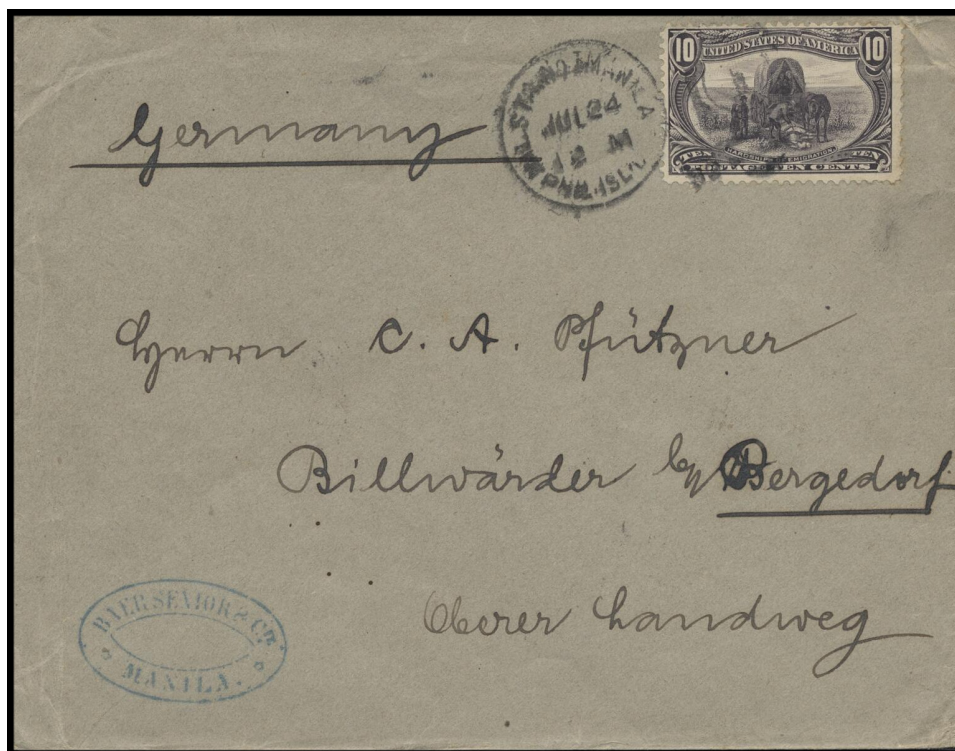 10 UNITED STATES OF AMERICA 10
HARDSHIPS OF EMIGRATION.
TEN TEN
POSTAGE TEN CENTS
MIL. STA. NO. 1 MANILA
JUL 24
12 M
PHIL. ISL'DS
Germany
Herrn C. A. Pfützner
Billwärder b/ Bergedorf
Oberer Landweg
BAER SENIOR & Co.
MANILA.